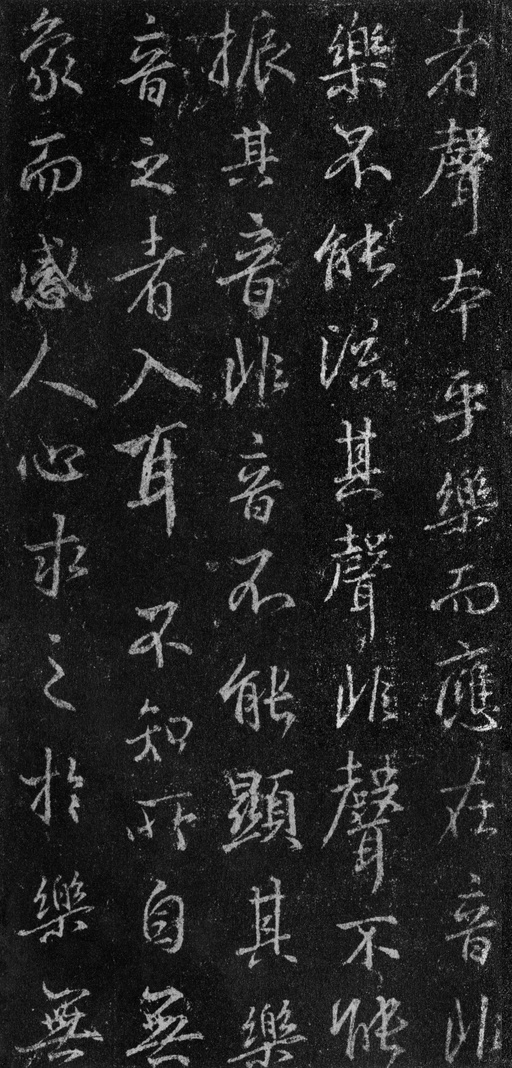 者聲本乎樂而應在音非
樂不能流其聲非聲不能
振其音非音不能顯其樂
音之者入耳不知所自無
象而感人心求之於樂無